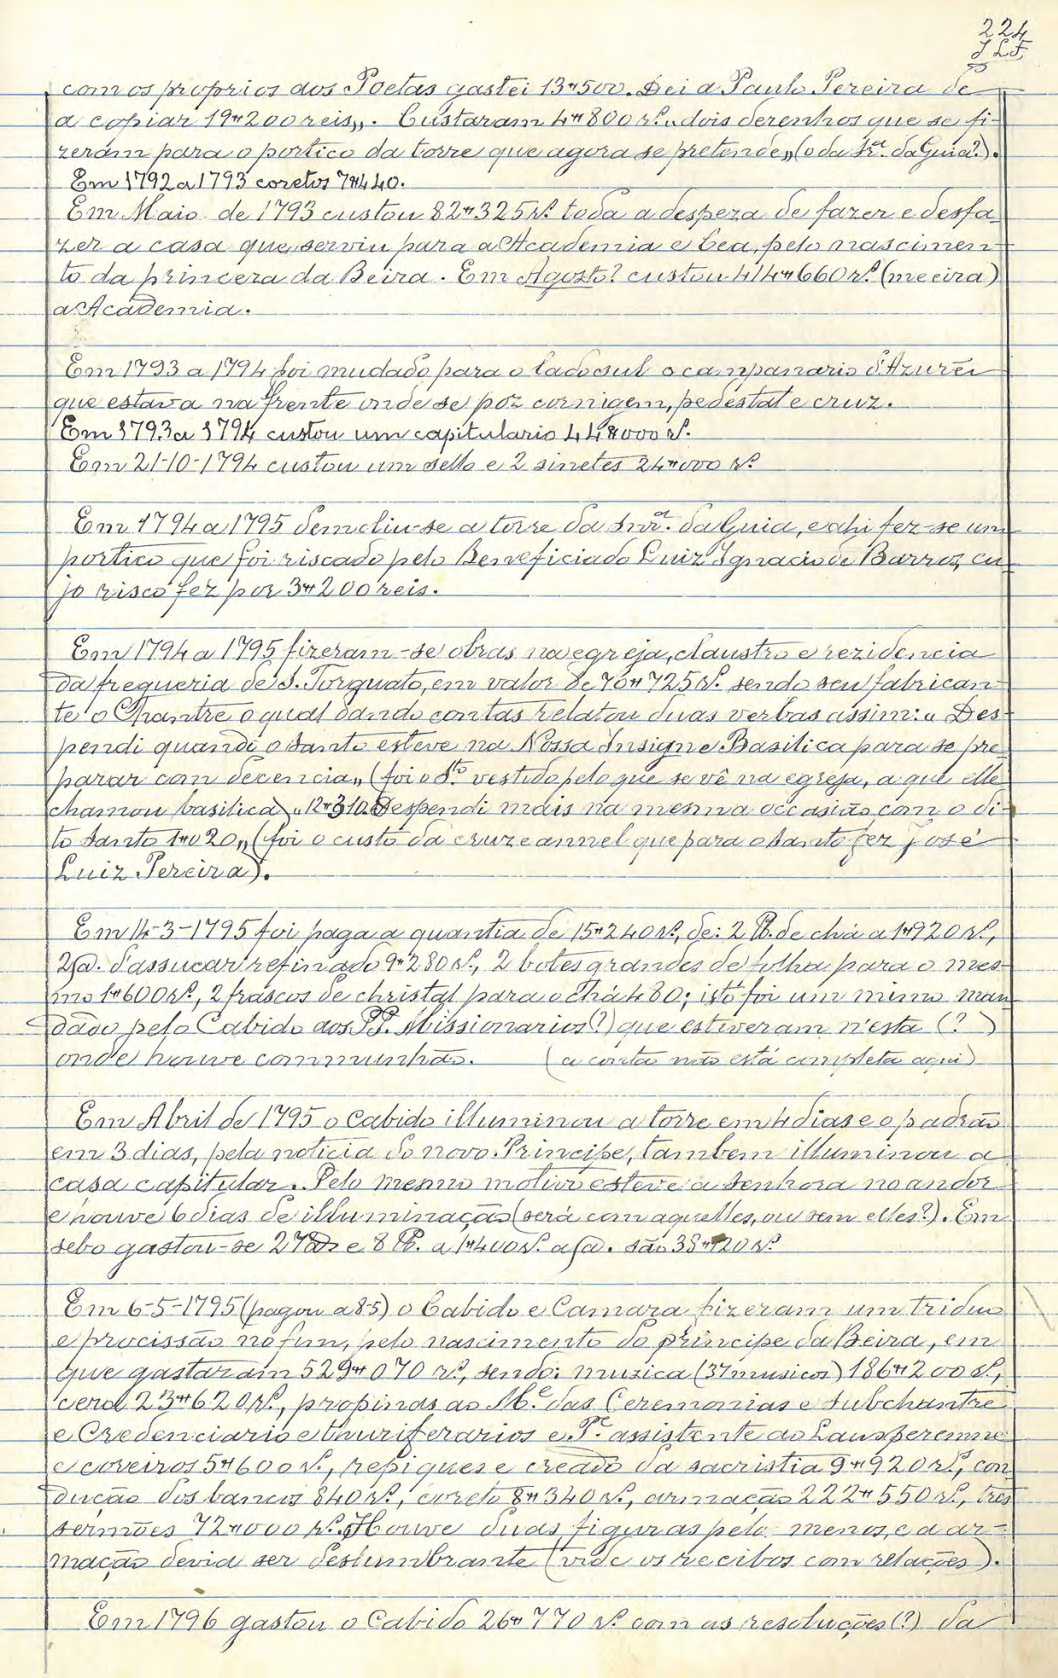 224
JLF
com os proprios dos Poetas gastei 13$500. Dei a Paulo Pereira de
a copiar 19$200 reis,,. Custaram 4$800 rs. ,,dois desenhos que se fi-
zeram para o portico da torre que agora se pretende,, (o da Sra. da Guia?).
Em 1792 a 1793 coretos 7$440.
Em Maio de 1793 custou 82$325 rs. toda a despeza de fazer e desfa-
zer a casa que serviu para a Academia e Cea, pelo nascimen-
to da princeza da Beira. Em Agosto? custou 414$660 rs. (meeira)
a Academia.
Em 1793 a 1794 foi mudado para o lado sul o campanario d'Azurei
que estava na frente onde se poz cornigem, pedestal e cruz.
Em 1793 a 1794 custou um capitulario 44$000 rs.
Em 21-10-1794 custou um sello e 2 sinetes 24$000 rs.
Em 1794 a 1795 demoliu-se a torre da Snra. da Guia, e ahi fez-se um
portico que foi riscado pelo Beneficiado Luiz Ignacio de Barros, cu-
jo risco fez por 3$200 reis.
Em 1794 a 1795 fizeram-se obras na egreja, claustro e rezidencia
da freguezia de S. Torquato, em valor de 76$725 rs. sendo seu fabrican-
te o Chantre o qual dando contas relatou duas verbas assim: ,,Des-
pendi quando o Santo esteve na Nossa Insigne Basilica para se pre-
parar com decencia,, (foi o Sto. vestido pelo que se vê na egreja, a que elle
chamou basilica) ,,12$310. Despendi mais na mesma occasião com o di-
to Santo 1$020,, (foi o custo da cruz e annel que para o Santo fez José
Luiz Pereira).
Em 14-3-1795 foi paga a quantia de 15$240 rs., de: 2 lb. de chá a 1$920 rs.,
2 @. d'assucar refinado 9$280 rs., 2 botes grandes de folha para o mes-
mo 1$600 rs., 2 frascos de christal para o chá 480; isto foi um mimo man-
dado pelo Cabido aos PP. Missionarios (?) que estiveram n'esta (? )
onde houve communhão. (a conta não está completa aqui)
Em Abril de 1795 o Cabido illuminou a torre em 4 dias e o padrão
em 3 dias, pela noticia do novo Principe, tambem illuminou a
casa capitular. Pelo mesmo motivo esteve a Senhora no andor
e houve 6 dias de illuminação (será com aquelles, ou sem elles?). Em
sebo gastou-se 27@ e 8 lb. a 1$400 rs. a @. são 38$120 rs.
Em 6-5-1795 (pagou a 8-5) o Cabido e Camara fizeram um triduo
e procissão no fim, pelo nascimento do principe da Beira, em
que gastaram 529$070 rs., sendo: musica (37 musicos) 186$200 rs.,
cera 23$620 rs., propinas ao Me. das Ceremonias e Subchantre
e Credenciario e thuriferarios e Pe. assistente ao Lausperenne
e coveiros 5$600 rs., repiques e creado da sacristia 9$920 rs., con-
dução dos bancos 840 rs., coreto 8$340 rs., armação 222$550 rs., tres
sermões 72$000 rs. Houve duas figuras pelo menos, e a ar-
mação devia ser deslumbrante (vide os recibos com relações).
Em 1796 gastou o Cabido 26$770 rs. com as resoluções (?) da